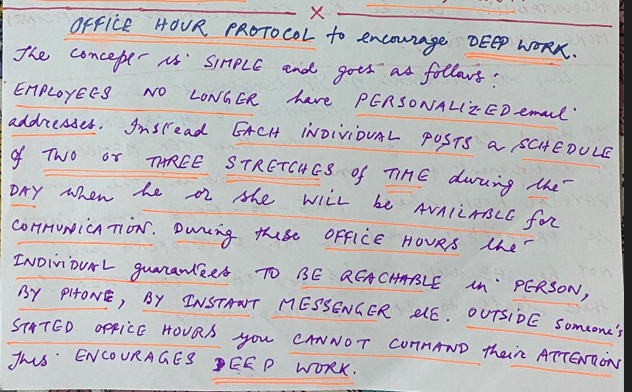 OFFICE HOUR PROTOCOL to encourage DEEP WORK.
The concept is SIMPLE and goes as follows:
EMPLOYEES NO LONGER have PERSONALIZED email
addresses. Instead EACH INDIVIDUAL POSTS a SCHEDULE
of TWO or THREE STRETCHES of TIME during the
DAY when he or she WILL be AVAILABLE for
COMMUNICATION. During these OFFICE HOURS the
INDIVIDUAL guarantees TO BE REACHABLE in PERSON,
BY PHONE, BY INSTANT MESSENGER etc. OUTSIDE someone's
STATED OFFICE HOURS you CANNOT COMMAND their ATTENTION
This ENCOURAGES DEEP WORK.